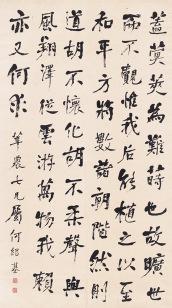 蓋蓂莢為難蒔也故曠世
而不覿惟我后能殖之以至
和平方將數諸朝階然則
道胡不懷化胡不柔聲與
風翔澤從雲游萬物我賴
亦又何求
華農七兄屬何紹基